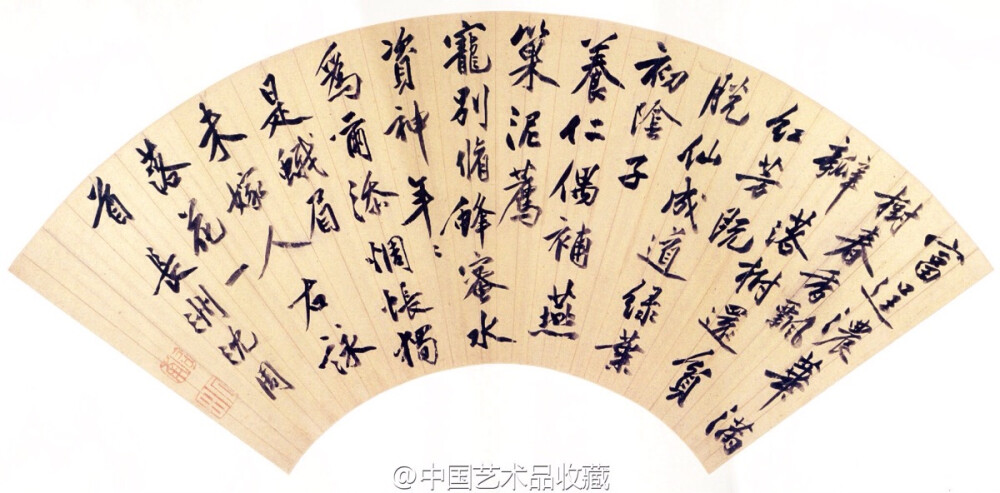 富逞濃華滿
樹春香飄
瓣落樹還貧
紅芳既
脫仙成道綠葉
初陰子
養仁偶補燕
巢泥薦
寵別脩蜂蜜水
資神年〻
爲爾添惆悵獨
是蛾眉
未嫁人右詠
落花一
首長洲沈周
@中国艺术品收藏